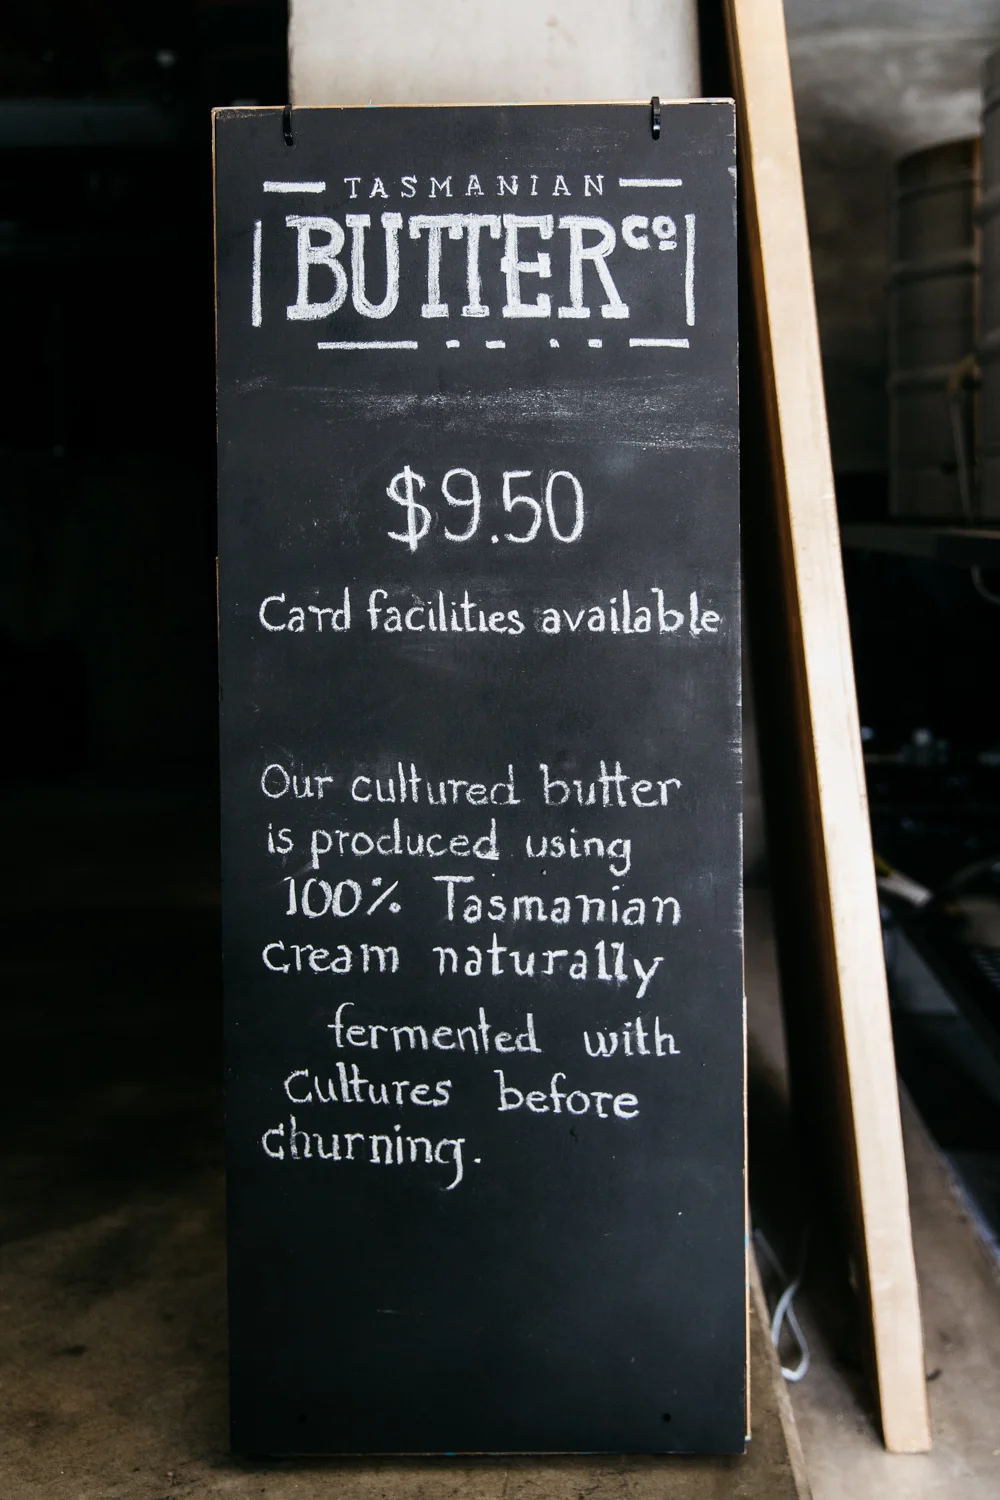 TASMANIAN
BUTTER CO
$9.50
Card facilities available
Our cultured butter
is produced using
100% Tasmanian
cream naturally
fermented with
Cultures before
churning.